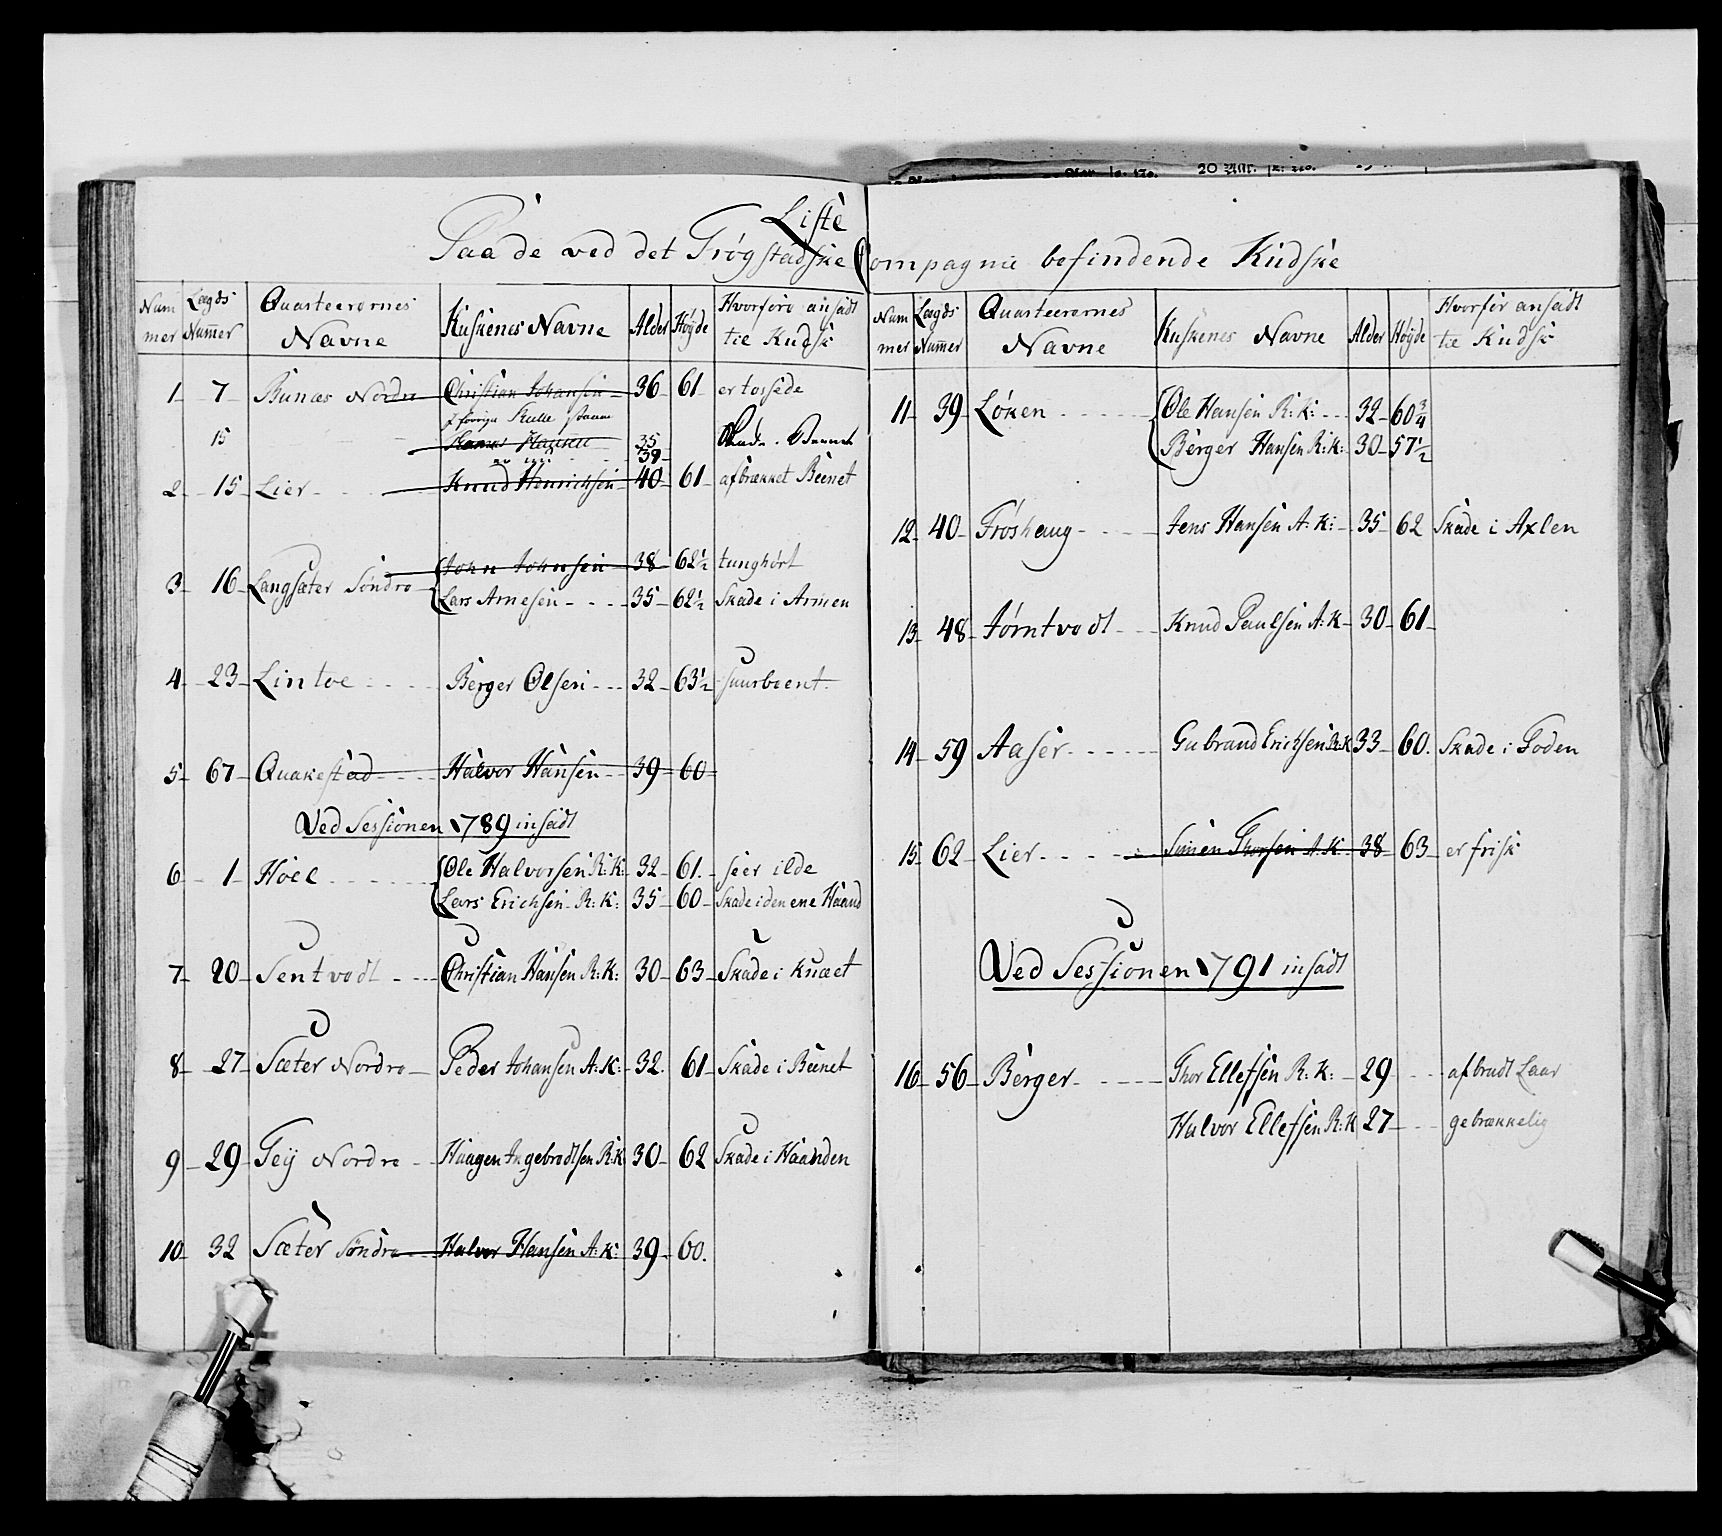 Liste
Paa de ved det Trøgstadske Compagnie befindende Kudske
Num Lægds Quarteerernes Kuskenes Navne Alder Høyde Hvorfore ansadt
mer Nummer Navne til Kudsk
1 7 Bunæs Nordre Christian Johansen 36 61 er tossede
15 Hansen 35
39
2 15 Lier Knud Henrichsen 40 61 afbrækket Beenet
3 16 Langsæter Søndre John Johnsen 38 62½ tunghørt
Lars Arnesen 35 62½ Skade i Armen
4 23 Lintoe Berger Olsen 32 63½ suurbeent
5 67 Quakestad Halvor Hansen 39 60
Ved Sessionen 1789 insadt
6 1 Hoel Ole Halvorsen R:K: 32 61 seer ilde
Lars Erichsen R:K: 35 60 Skade i den ene Haand
7 20 Sentvodt Christian Hansen R:K: 30 63 Skade i Knæet
8 27 Sæter Nordre Peder Johansen A:K: 32 61 Skade i Beenet
9 29 Teij Nordre Haagen Ingebrodtsen R:K 30 62 Skade i Haanden
10 32 Sæter Søndre Halvor Hansen A:K: 39 60.
Num Lægds Quarteerernes Kuskenes Navne Alder Høyde Hvorfor ansadt
mer Nummer Navne til Kudsk
11 39 Løken Ole Hansen R:K: 32 60¾
Berger Hansen R:K: 30 57½
12 40 Frøshaug Jens Hansen A:K: 35 62 Skade i Axlen
13 48 Tømtvodt Knud Paulsen A:K 30 61
14 59 Aaser Gubrand Erichsen R:K 33 60. Skade i Foden
15 62 Lier Simen Thorsen A:K. 38 63 er frisk
Ved Sessionen 1791 insadt
16 56 Berger Thor Ellefsen R:K: 29 afbrudt Laar
Halvor Ellefsen R:K 27 gebrækkelig